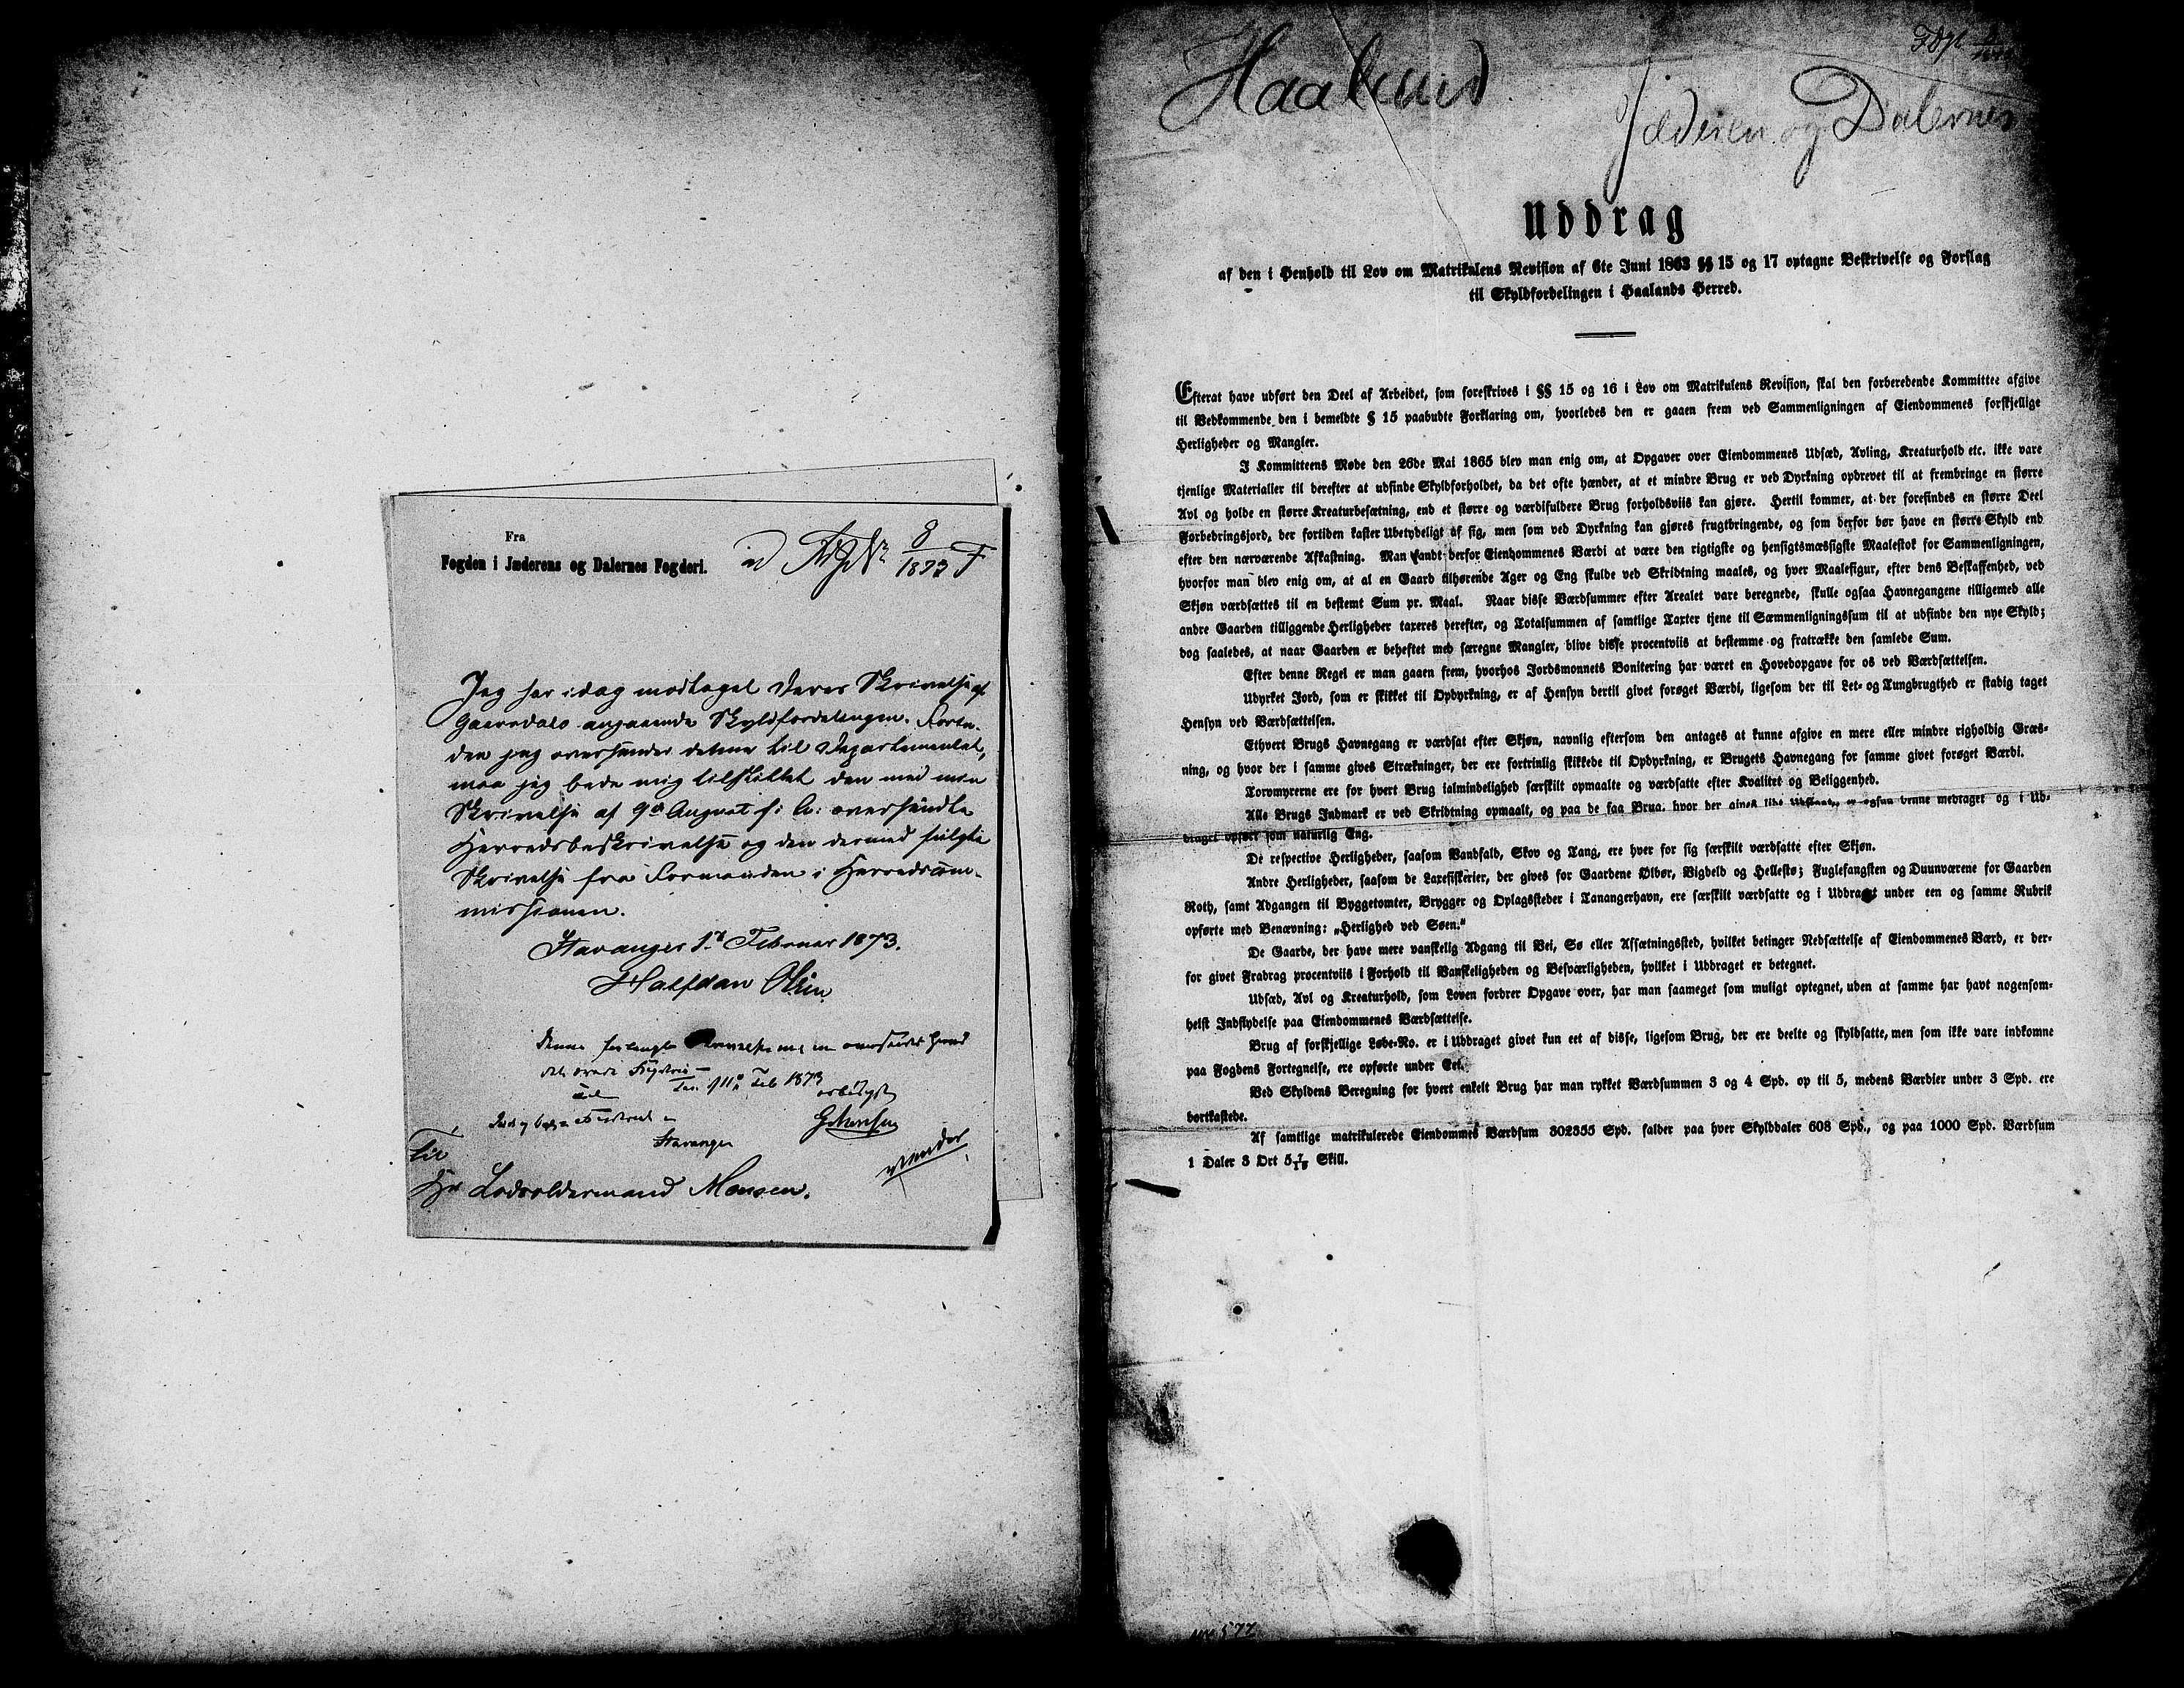 Fra
Fogden i Jæderens og Dalernes Fogderi.
8
1873 F
Jeg har idag modtaget Deres Skrivelse af
Gaarsdato angaaende Skyldfordelingen. Forin-
den jeg oversender denne til Departementet,
maa jeg bede mig tilstillet den med min
Skrivelse af 9de August f: A: oversendte
Herredsbeskrivelse og den dermed fulgte
Skrivelse fra Formanden i Herredscom-
missionen.
Stavanger 1ste Februar 1873.
Halfdan Olsen
Denne forlangte
11 Feb 1873
ærbødigst
Til
Stavanger
vendes
Til
Hr Lodsoldermand Monsen.
Haaland
Jæderen og Dalernes
Uddrag
af den i Henhold til Lov om Matrikulens Revision af 6te Juni 1863 §§ 15 og 17 optagne Beskrivelse og Forslag
til Skyldfordelingen i Haalands Herred.
Efterat have udført den Deel af Arbeidet, som foreskrives i §§ 15 og 16 i Lov om Matrikulens Revision, skal den forberedende Kommittee afgive
til Vedkommende den i bemeldte § 15 paabudte Forklaring om, hvorledes den er gaaen frem ved Sammenligningen af Eiendommenes forskjellige
Herligheder og Mangler.
I Kommitteens Møde den 26de Mai 1865 blev man enig om, at Opgaver over Eiendommenes Udsæd, Avling, Kreaturhold etc. ikke vare
tjenlige Materialier til derefter at udfinde Skyldforholdet, da det ofte hænder, at et mindre Brug er ved Dyrkning opdrevet til at frembringe en større
Avl og holde en større Kreaturbesætning, end et større og værdifuldere Brug forholdsviis kan gjøre. Hertil kommer, at der forefindes en større Deel
Forbedringsjord, der fortiden kaster Ubetydeligt af sig, men som ved Dyrkning kan gjøres frugtbringende, og som derfor bør have en større Skyld end
efter den nærværende Afkastning. Man fandt derfor Eiendommenes Værdi at være den rigtigste og hensigtsmæssigste Maalestok for Sammenligningen,
hvorfor man blev enig om, at al en Gaard tilhørende Ager og Eng skulde ved Skridtning maales, og hver Maalefigur, efter dens Beskaffenhed, ved
Skjøn værdsættes til en bestemt Sum pr. Maal. Naar disse Værdsummer efter Arealet vare beregnede, skulle ogsaa Havnegangene tilligemed alle
andre Gaarden tilliggende Herligheder taxeres derefter, og Totalsummen af samtlige Taxter tjene til Sammenligningssum til at udfinde den nye Skyld;
dog saaledes, at naar Gaarden er beheftet med særegne Mangler, blive disse procentviis at bestemme og fratrække den samlede Sum.
Efter denne Regel er man gaaen frem, hvorhos Jordsmonnets Bonitering har været en Hovedopgave for os ved Værdsættelsen.
Udyrket Jord, som er skikket til Opdyrkning, er af Hensyn dertil givet forøget Værdi, ligesom der til Let- og Tungbrugthed er stadig taget
Hensyn ved Værdsættelsen.
Ethvert Brugs Havnegang er værdsat efter Skjøn, navnlig eftersom den antages at kunne afgive en mere eller mindre righoldig Græs-
ning, og hvor der i samme gives Strækninger, der ere fortrinlig skikkede til Opdyrkning, er Brugets Havnegang for samme givet forøget Værdi.
Torvmyrerne ere for hvert Brug ialmindelighed særskilt opmaalte og værdsatte efter Kvalitet og Beliggenhed.
Alle Brugs Indmark er ved Skridtning opmaalt, og paa de faa Brug, hvor der gives lidt Udslaat, er ogsaa denne medtaget og i Ud-
draget opført som naturlig Eng.
De respective Herligheder, saasom Vandfald, Skov og Tang, ere hver for sig særskilt værdsatte efter Skjøn.
Andre Herligheder, saasom de Laxefiskerier, der gives for Gaardene Ølbør, Vigdeld og Hellestø; Fuglefangsten og Duunværene for Gaarden
Roth, samt Adgangen til Byggetomter, Brygger og Oplagssteder i Tanangerhavn, ere særskilt værdsatte og i Uddraget under een og samme Rubrik
opførte med Benævning: „Herlighed ved Søen."
De Gaarde, der have mere vanskelig Adgang til Vei, Sø eller Afsætningssted, hvilket betinger Nedsættelse af Eiendommenes Værd, er der-
for givet Fradrag procentviis i Forhold til Vanskeligheden og Besværligheden, hvilket i Uddraget er betegnet.
Udsæd, Avl og Kreaturhold, som Loven fordrer Opgave over, har man saameget som muligt optegnet, uden at samme har havt nogensom-
helst Indflydelse paa Eiendommenes Værdsættelse.
Brug af forskjellige Løbe-No. er i Uddraget givet kun eet af disse, ligesom Brug, der ere deelte og skyldsatte, men som ikke vare indkomne
paa Fogdens Fortegnelse, ere opførte under Eet.
Ved Skyldens Beregning for hvert enkelt Brug har man rykket Værdsummen 3 og 4 Spd. op til 5, medens Værdier under 3 Spd. ere
bortkastede.
Af samtlige matrikulerede Eiendommes Værdsum 302355 Spd. falder paa hver Skylddaler 608 Spd., og paa 1000 Spd. Værdsum
1 Daler 3 Ort 5 7/18 Skill.